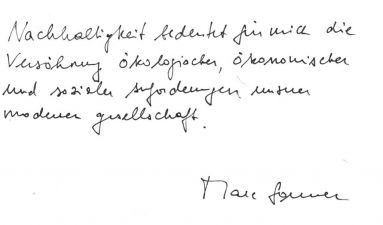 Nachhaltigkeit bedeutet für mich die
Versöhnung ökologischer, ökonomischer
und sozialer Anforderungen unserer
modernen Gesellschaft.
Marc